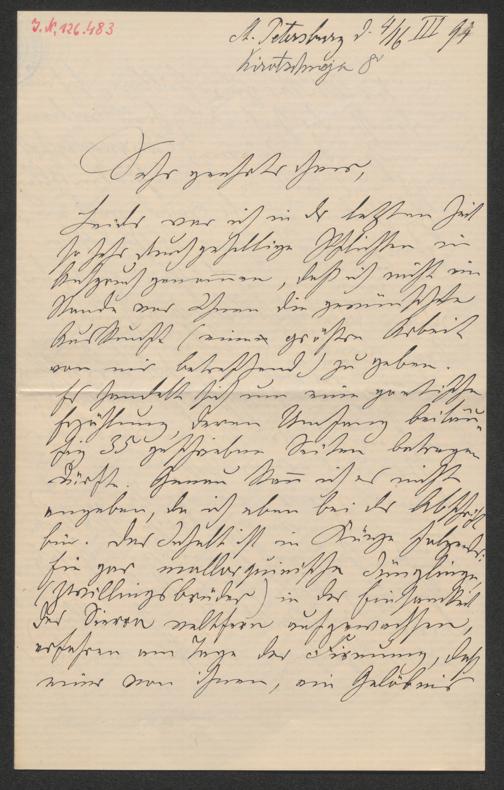 J.N. 126.483
St. Petersburg d. 4/16 III 94
Kirotschnaja 8
Sehr geehrter Herr,
Leider war ich in der letzten Zeit
so sehr durch gesellige Pflichten in
Anspruch genommen, daß ich nicht im
Stande war Ihnen die gewünschte
Auskunft (eine größere Arbeit
von mir betreffend) zu geben.
Es handelt sich um eine poetische
Erzählung, deren Umfang beiläu-
fig 35 geschriebene Seiten betragen
dürfte. Genau kann ich es nicht
angeben, da ich eben bei der Abschrift
bin. Der Inhalt ist in Kürze folgender:
Ein Paar mallorquinische Jünglinge,
(Zwillingsbrüder) in der Einsamkeit
der Sierra weltfern aufgewachsen,
erfahren am Tage der Firmung, daß
einer von ihnen, ein Gelöbnis